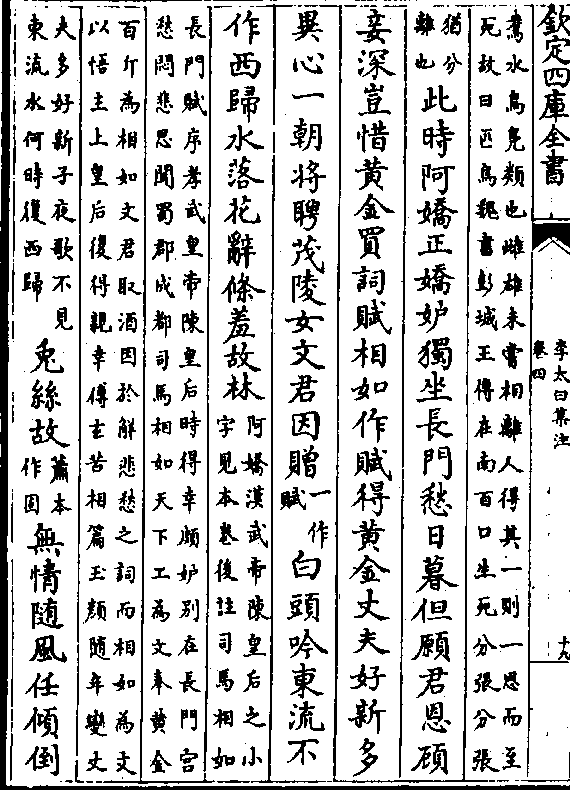 欽定四庫全書
李太白集注
卷四
十九
鴦水鳥鳬類也雌雄未嘗相離人得其一則一思而至
死故曰匹鳥魏書彭城王傳在南百口生死分張分張
猶分
離也
此時阿嬌正嬌妒獨坐長門愁日暮但願君恩顧
妾深豈惜黃金買詞賦相如作賦得黃金丈夫好新多
異心一朝將聘茂陵女文君因贈
一作
賦
白頭吟東流不
作西歸水落花辭條羞故林
阿嬌漢武帝陳皇后之小
字見本卷後註司馬相如
長門賦序孝武皇帝陳皇后時得幸頗妒別在長門宮
愁悶悲思聞蜀郡成都司馬相如天下工為文奉黃金
百斤為相如文君取酒因於解悲愁之詞而相如為文
以悟主上皇后復得親幸傅玄苦相篇玉顏隨年變丈
夫多好新子夜歌不見
東流水何時復西歸
兎絲故
蕭本
作固
無情隨風任傾倒